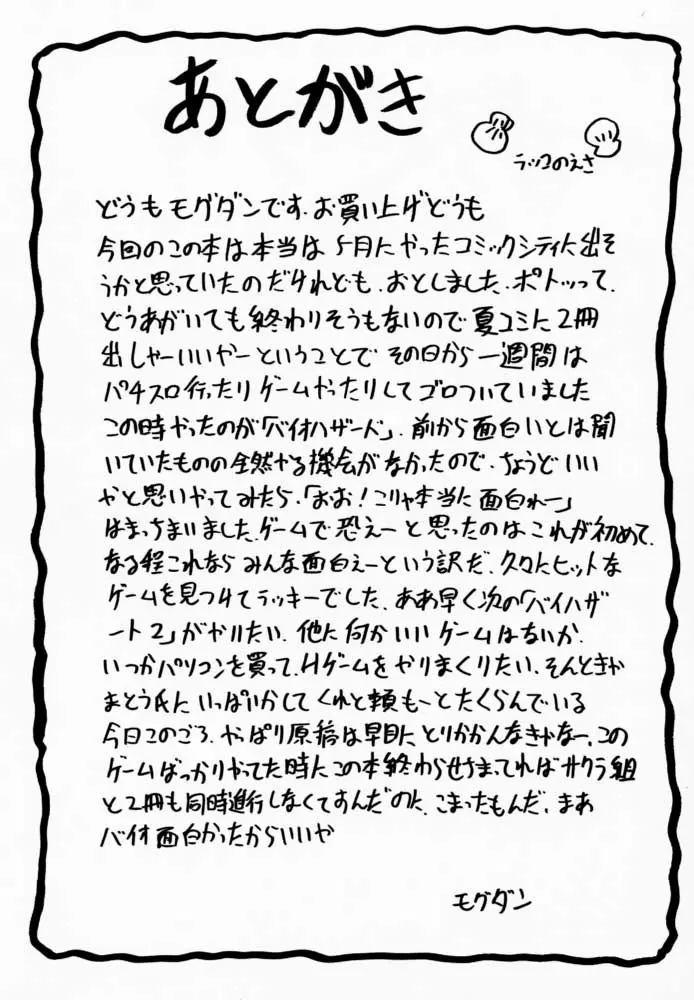 あとがき
ラッコのえさ
どうもモグダンです。お買い上げどうも
今回のこの本は本当は5月にやったコミックシティに出そ
うかと思っていたのだけれども、おとしました、ポトッって。
どうあがいても終わりそうもないので夏コミに2冊
出しゃーいいやーということでその日から一週間は
パチスロ行ったりゲームやったりしてゴロついていました
この時やったのが「バイオハザード」、前から面白いとは聞
いていたものの全然やる機会がなかったので、ちょうどいい
やと思いやってみたら、「おお!こりゃ本当に面白れー」
はまっちまいました。ゲームで恐えーと思ったのはこれが初めて、
なる程これならみんな面白えーという訳だ、久々にヒットな
ゲームを見つけてラッキーでした、ああ早く次の「バイハザ
ート2」がやりたい、他に何かいいゲームはないか、
いつかパソコンを買って、Hゲームをやりまくりたい、そんときゃ
まとう氏にいっぱいかしてくれと頼もーとたくらんでいる
今日このごろ、やっぱり原稿は早目にとりかかんなきゃなー、この
ゲームばっかりやってた時にこの本終わらせちまってればサクラ組
と2冊も同時進行しなくてすんだのに、こまったもんだ、まあ
バイオ面白かったからいいや
モグダン